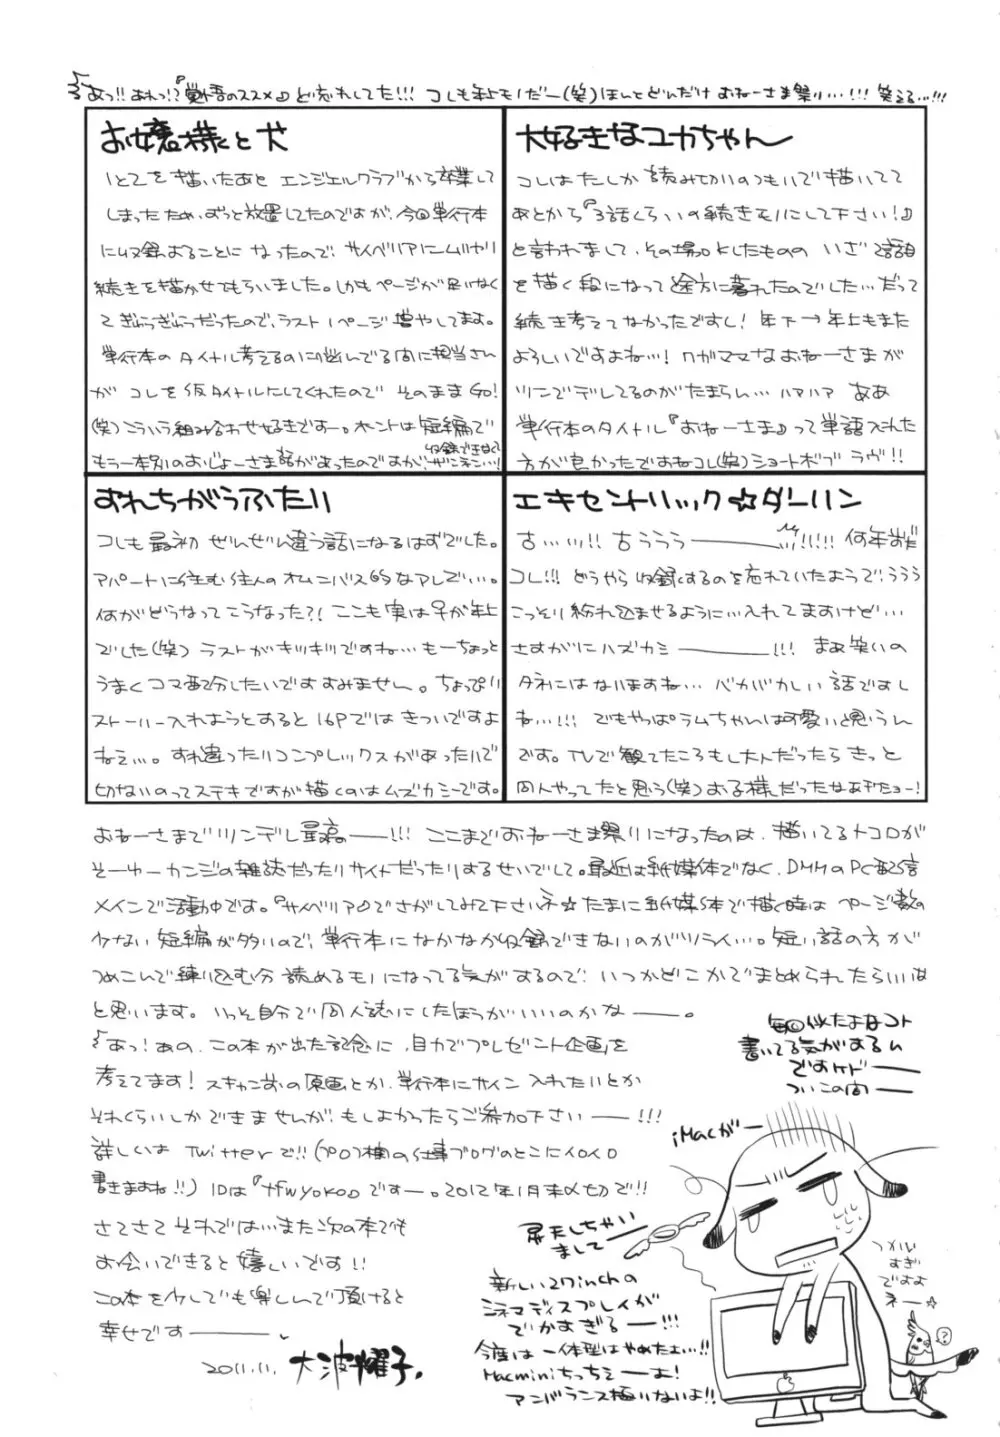 あっ!!あれっ!?『覚悟のススメ』ど忘れしてた!!! コレも年上モノだー(笑)ほんとどんだけ おねーさま祭り…!!! 笑える…!!!
お嬢様と犬
1と2を描いたあと エンジェルクラブから卒業して
しまったため、ずっと放置してたのですが、今回単行本
に収録することに なったので、サイベリアにムリヤリ
続きを描かせてもらいました。しかもページが足いなく
てぎゅうぎゅうだったので、ラスト1ページ増やしてます。
単行本のタイトル考えるのに悩んでる間に担当さん
が コレを仮タイトルにしてくれたので そのままGO!
(笑)こういう組み合わせ好きですー。ホントは短編で
もう一本別のおじょーさま話があったのですが、収録できなくてザンネン…!
大好きなユカちゃん
コレはたしか 読み切りのつもりで描いてて
あとから『3話くらいの続きモノにして下さい!』
と言われまして、その場OKしたものの いざ2話目
を描く段になって途方に暮れたのでした…だって
続き考えてなかったですし! 年下→年上もまた
よろしいですよね…! ワガママなおねーさまが
ツンでデレしてるのがたまらん… ハァハァ ああ
単行本のタイトル『おねーさま』って単語入れた
方が良かったですねコレ(笑)ショートボブ ラヴ!!
すれちがうふたり
コレも最初 ぜんぜん違う話になるはずでした。
アパートに住む住人のオムニバス的なアレで…。
何がどうなってこうなった?! ここも実は♀が年上
でした(笑) ラストがキツキツですね… もーちょっと
うまくコマ配分したいですすみません。ちょっぴり
ストーリー入れようとすると16Pではきついですよ
ねぇ…。すれ違ったりコンプレックスがあったりで
切ないのってステキですが描くのはムズカシーです。
エキセントリック☆ダーリン
古…ッ!! 古ううう――!!!!! 何年前だ
コレ!!! どうやら収録するのを忘れていたようで、ううう
こっそり紛れ込ませるように…入れてますけど…
さすがにハズカシ――!!! まあ笑いの
タネにはなりますね… バカバカしい話ですし
ね…!!! でもやっぱラムちゃんは可愛いと思うん
です。TVで観てたころもし大人だったらきっと
同人やってたと思う(笑)お子様だったなあチョー!
おねーさまでツンデレ最高――!!! ここまでおねーさま祭りになったのは、描いてるトコロが
そーゆーカンジの雑誌だったりサイトだったりするせいでして。最近は紙媒体でなく、DMMのPC配信
メインで活動中です。『サイベリア』でさがしてみて下さいネ☆たまに紙媒体で描く時は ページ数の
少ない短編が多いので、単行本になかなか収録できないのがツライ…。短い話の方が
つめこんで練り込む分 読めるモノになってる気がするので、いつかどこかでまとめられたらいいな
と思います。いっそ自分で同人誌にしたほうがいいのかなー。
あっ!あの、この本が出た記念に、自力でプレゼント企画を
考えてます! スキャン前の原画とか、単行本にサイン入れたいとか
それくらいしかできませんが、もしよかったらご参加下さい――!!!
詳しくは Twitterで!!(プロフ欄の仕事ブログのとこにイロイロ
書きますね!!) IDは『tfwyoko』ですー。2012年1月末〆切で!!
さてさて それでは…また次の本でも
お会いできると嬉しいです!!
この本を少しでも楽しんで頂けると
幸せです――
2011.11. 大波耀子。
毎回似たよなコト
書いてる気がするん
ですケドー
ついこの間ー
iMacがー
昇天しちゃい
ましてー
新しい27inchの
シネマディスプレイが
でかすぎるー!!!
今度は一体型はやめたよ…!!
Macminiちっちぇーよ!
アンバランス極いないよ!!
つかい
すぎ
ですよ
ネー☆
?